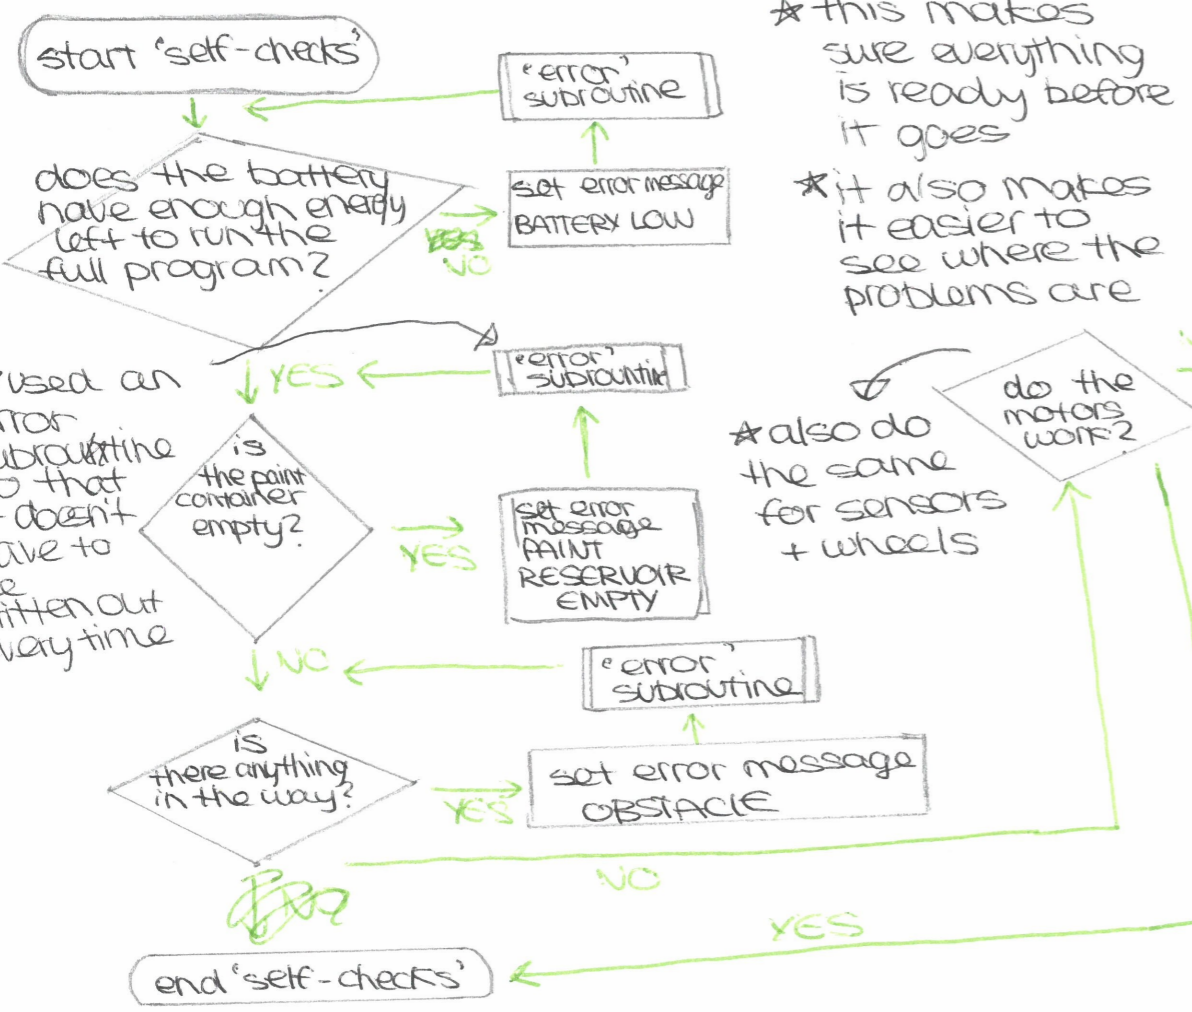 start 'self-checks'
'error'
subroutine
does the battery
have enough energy
left to run the
full program?
NO
set error message
BATTERY LOW
★ this makes
sure everything
is ready before
it goes
★ it also makes
it easier to
see where the
problems are
YES
'error'
subrountine
used an
that
doesn't
to
out
time
is
the paint
container
empty?
YES
set error
message
PAINT
RESERVOIR
EMPTY
★ also do
the same
for sensors
+ wheels
do the
motors
work?
NO
'error'
subroutine
is
there anything
in the way?
YES
set error message
OBSTACLE
NO
YES
end 'self-checks'